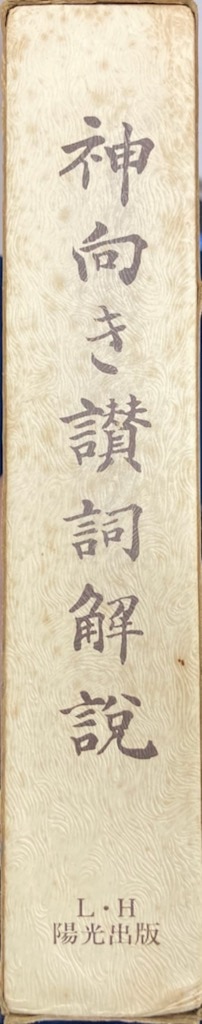 神向き讃詞解説
L・H
陽光出版